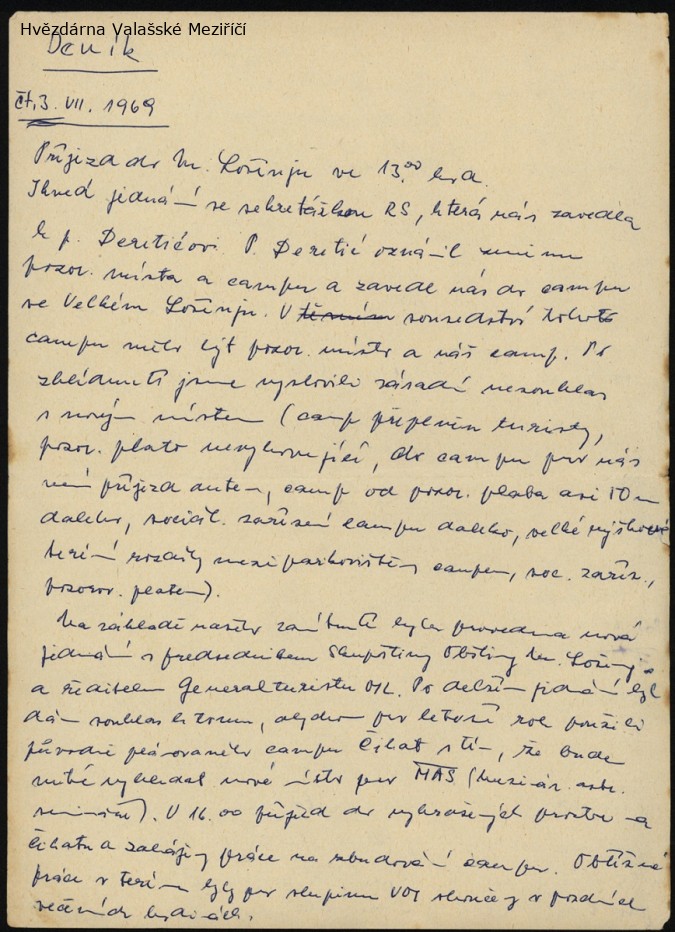 Hvězdárna Valašské Meziříčí
Deník
čt. 3. VII. 1969
Příjezd do M. Lošinju ve 13.00 hod.
Ihned jednání se sekretářkou RS, která nás zavedla
k p. Deretičovi. P. Deretič oznámil změnu
pozor. místa a campu a zavedl nás do campu
ve Velkém Lošinju. V těsném sousedství tohoto
campu mělo být pozor. místo a náš camp. Po
zhlédnutí jsme vyslovili zásadní nesouhlas
s novým místem (camp přeplněn turisty,
pozor. plato nevyhovující, do campu pro nás
není příjezd autem, camp od pozor. plata asi 50 m
daleko, sociál. zařízení campu daleko, velké výškové
terénní rozdíly mezi parkovištěm, campem, soc. zaříz.,
pozorov. platem).
Na základě našeho zamítnutí byla provedena nová
jednání s předsedníkem Skupštiny Obštiny M. Lošinj
a ředitelem Generalturistu ML. Po delším jednání byl
dán souhlas k tomu, abychom pro letošní rok použili
původně plánovaného campu Čikat s tím, že bude
nutné vyhledat nové místo pro MAS (Mezinár. astr.
seminář). V 16.00 příjezd do vyhrazených prostor na
Čikatu a zahájeny práce na zbudování campu. Obtížné
práce v terénu byly pro skupinu skončeny v pozdních
večerních hodinách.